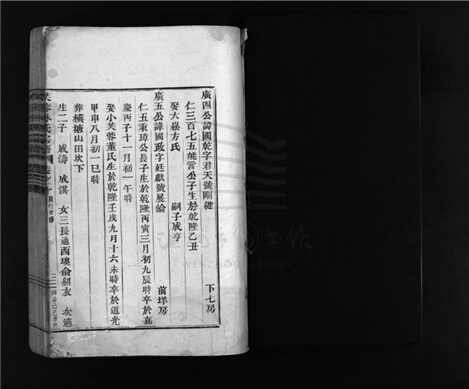 廣四公諱國乾字君天號剛健
仁三百七五能言公子生於乾隆乙丑
娶六嘉方氏 嗣子成亨
下七房
廣五公諱國政字廷獻號展綸
仁五秉璋公長子生於乾隆丙寅三月初九辰時卒於嘉
慶丙子十一月初一午時
前垟房
娶小芙蓉董氏生於乾隆壬戌九月十六未時卒於道光
甲申八月初一巳時
葬橫塘山田坎下
生二子 成濤 成湛 女三長適西墺俞紹友 次適